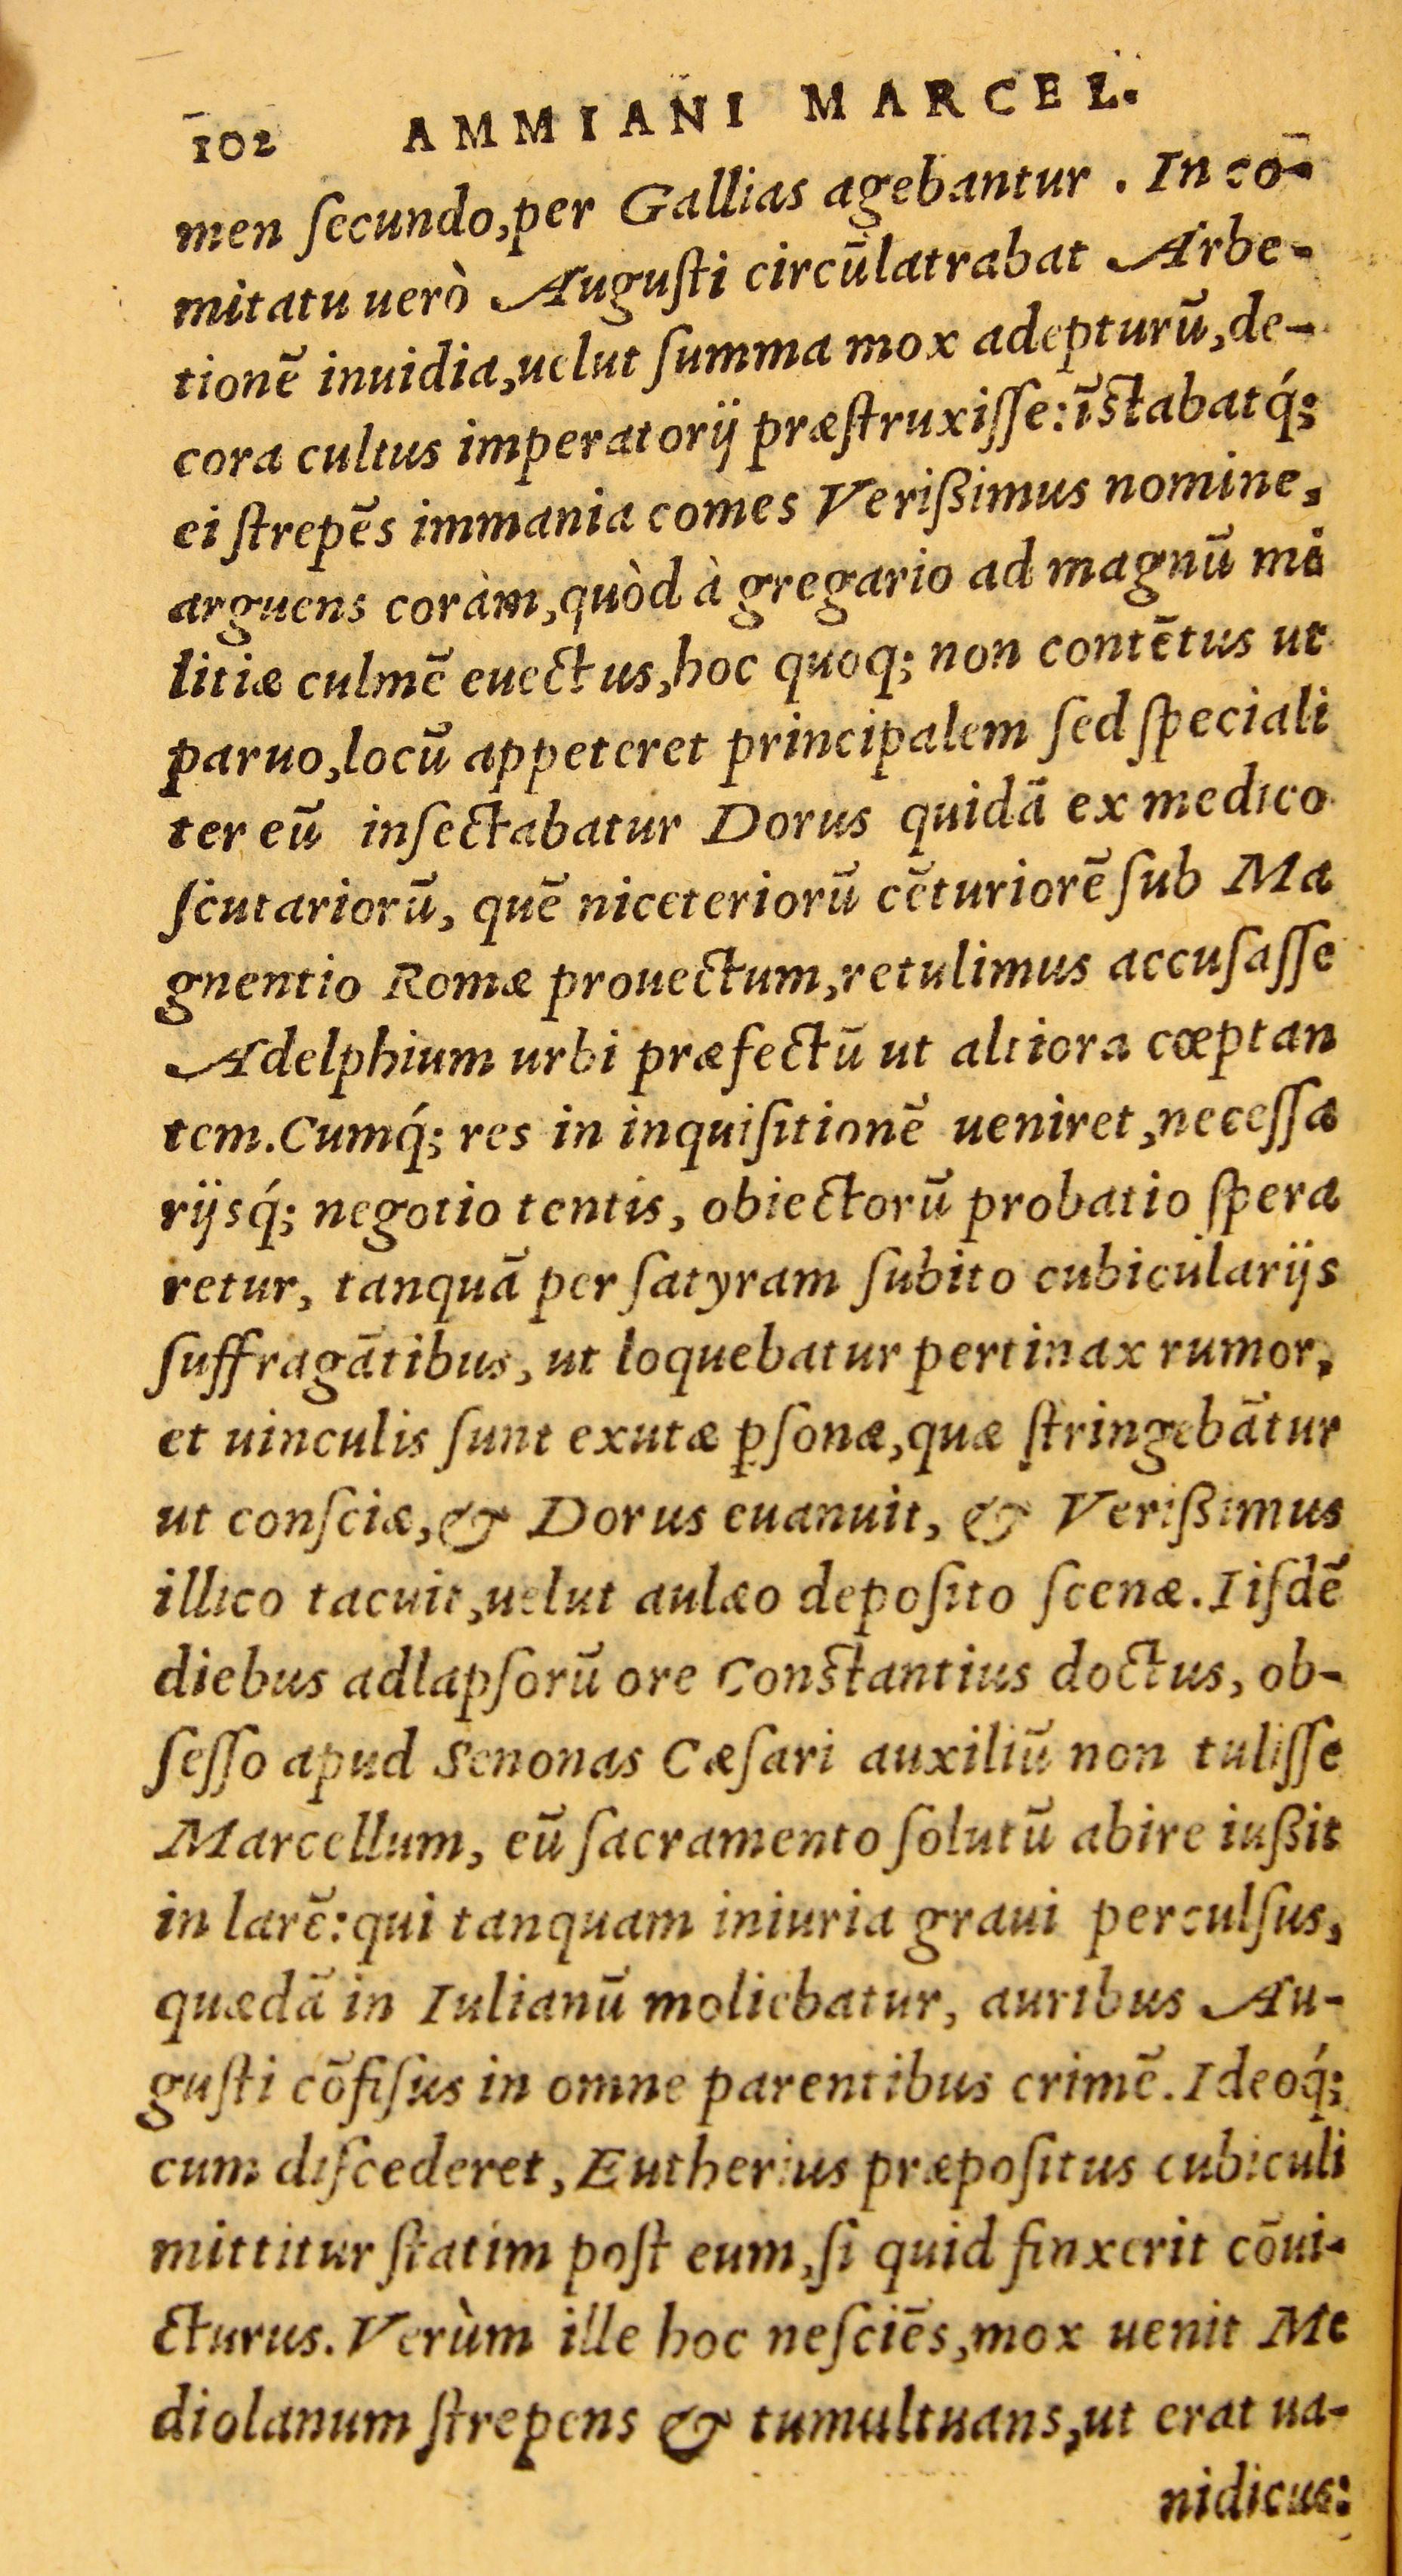 102 AMMIANI MARCEL.
men ſecundo,per Gallias agebantur . In cō-
mitatu uerò Auguſti circūlatrabat Arbe-
tionē inuidia,uelut ſumma mox adepturū,de-
cora cultus imperatorij præſtruxiſſe:īſtabatq́;
ei ſtrepēs immania comes Verißimus nomine,
arguens coràm,quòd à gregario ad magnū mi
litiæ culmē euectus,hoc quoq; non contētus ut
paruo,locū appeteret principalem ſed ſpeciali
ter eū inſectabatur Dorus quidā ex medico
ſcutariorū, quē niceteriorū cēturiorē ſub Ma
gnentio Romæ prouectum,retulimus accuſaſſe
Adelphium urbi præfectū ut altiora cœptan
tem.Cumq́; res in inquiſitionē ueniret,neceſſa
rijsq́; negotio tentis, obiectorū probatio ſpera
retur, tanquā per ſatyram ſubito cubicularijs
ſuffragātibus, ut loquebatur pertinax rumor,
et uinculis ſunt exutæ ꝑſonæ,quæ ſtringebātur
ut conſciæ,& Dorus euanuit, & Verißimus
illico tacuit,uelut aulæo depoſito ſcenæ.Iiſdē
diebus adlapſorū ore Conſtantius doctus, ob-
ſeſſo apud Senonas Cæſari auxiliū non tuliſſe
Marcellum, eū ſacramento ſolutū abire iußit
in larē:qui tanquam iniuria graui perculſus,
quædā in Iulianū moliebatur, auribus Au-
guſti cōfiſus in omne parentibus crimē.Ideoq́;
cum diſcederet, Eutherius præpoſitus cubiculi
mittitur ſtatim poſt eum,ſi quid finxerit cōui-
cturus.Verùm ille hoc neſciēs,mox uenit Me
diolanum ſtrepens & tumultuans,ut erat ua-
nidicus: